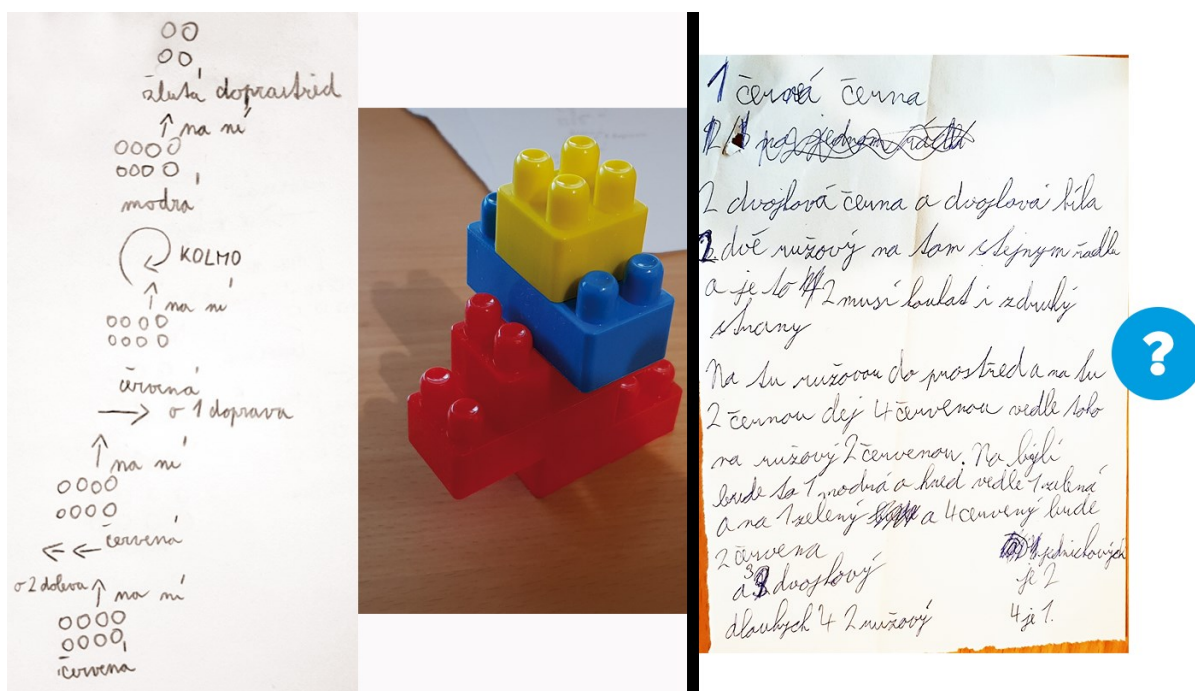 žlutá doprostřed
↑ na ní
modrá
KOLMO
↑ na ní
červená
→ o 1 doprava
↑ na ní
červená
o 2 doleva ↑ na ní
červená
1 černá černa
2 dvojlová černa a dvojlová bíla
2 dvě ružový na tom stejnym řadku
a je to 2 musí koukat i zdruhý
strany
Na tu ružovou do prostřed a na tu
2 černou dej 4 červenou vedle toho
na ružový 2 červenou. Na býlí
bude ta 1 modrá a hned vedle 1 zelená
a na 1 zelený a 4 červený bude
2 červena
jednichových
a 3 dvojlový
je 2
dlouhých 4 2 ružový
4 je 1.
?